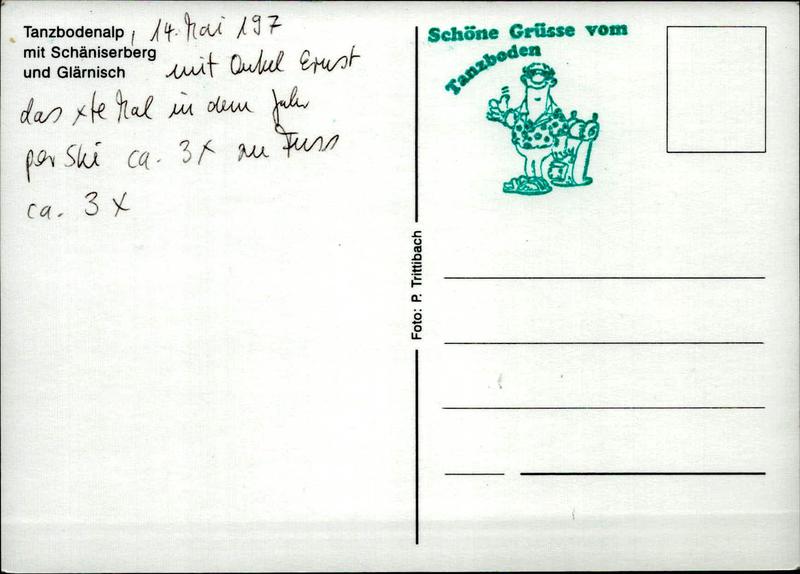 Tanzbodenalp, 14. Mai 197
mit Schäniserberg
und Glärnisch
mit Onkel Ernst
das xte Mal in dem Jahr
per Ski ca. 3 x zu Fuss
ca. 3 x
Foto: P. Trittibach
Schöne Grüsse vom
Tanzboden